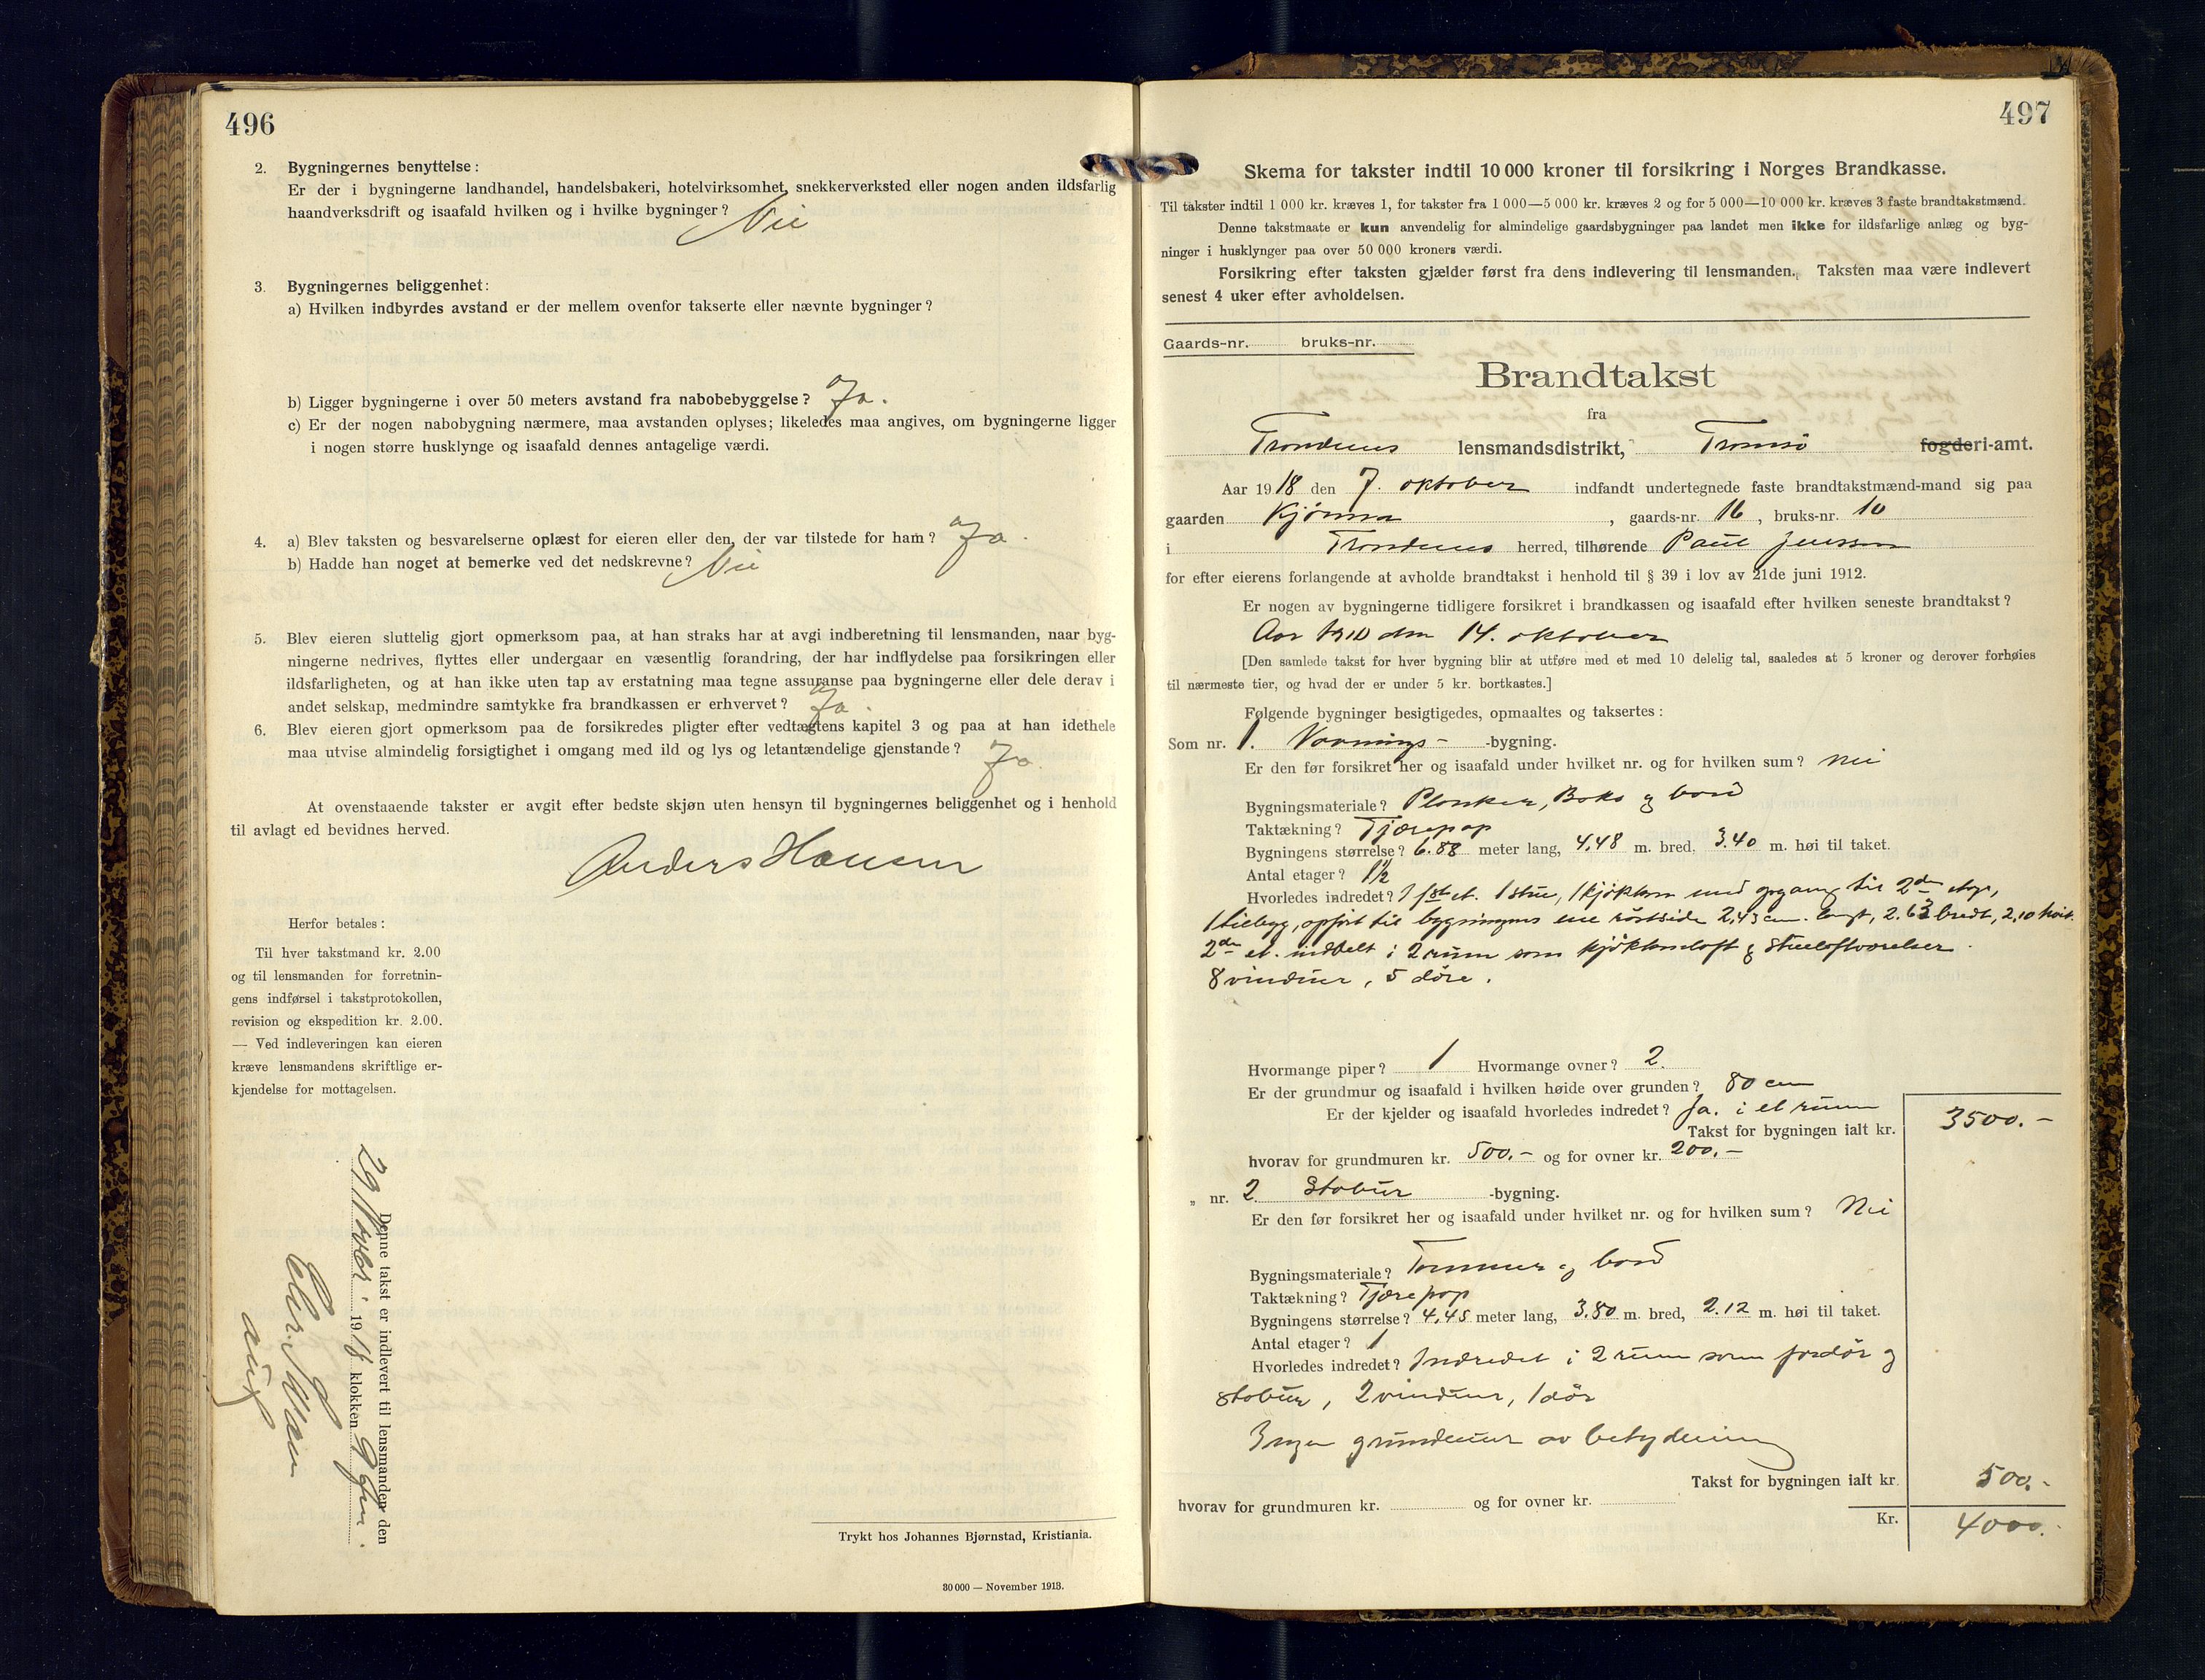 496
2. Bygningernes benyttelse:
Er der i bygningerne landhandel, handelsbakeri, hotelvirksomhet, snekkerverksted eller nogen anden ildsfarlig
haandverksdrift og isaafald hvilken og i hvilke bygninger? Nei
3. Bygningernes beliggenhet:
a) Hvilken indbyrdes avstand er der mellem ovenfor takserte eller nævnte bygninger?
b) Ligger bygningerne i over 50 meters avstand fra nabobebyggelse? Ja.
c) Er der nogen nabobygning nærmere, maa avstanden oplyses; likeledes maa angives, om bygningerne ligger
i nogen større husklynge og isaafald dennes antagelige værdi.
4. a) Blev taksten og besvarelserne oplæst for eieren eller den, der var tilstede for ham? Ja.
b) Hadde han noget at bemerke ved det nedskrevne? Nei
5. Blev eieren sluttelig gjort opmerksom paa, at han straks har at avgi indberetning til lensmanden, naar byg-
ningerne nedrives, flyttes eller undergaar en væsentlig forandring, der har indflydelse paa forsikringen eller
ildsfarligheten, og at han ikke uten tap av erstatning maa tegne assuranse paa bygningerne eller dele derav i
andet selskap, medmindre samtykke fra brandkassen er erhvervet? Ja.
6. Blev eieren gjort opmerksom paa de forsikredes pligter efter vedtægtens kapitel 3 og paa at han idethele
maa utvise almindelig forsigtighet i omgang med ild og lys og letantændelige gjenstande? Ja.
At ovenstaaende takster er avgit efter bedste skjøn uten hensyn til bygningernes beliggenhet og i henhold
til avlagt ed bevidnes herved.
Anders Hansen
Herfor betales:
Til hver takstmand kr. 2.00
og til lensmanden for forretnin-
gens indførsel i takstprotokollen,
revision og ekspedition kr. 2.00.
— Ved indleveringen kan eieren
kræve lensmandens skriftlige er-
kjendelse for mottagelsen.
Denne takst er indlevert til lensmanden den
29 Novbr. 1918 klokken 9 fm.
Trykt hos Johannes Bjørnstad, Kristiania.
30 000 — November 1913.
497
Skema for takster indtil 10 000 kroner til forsikring i Norges Brandkasse.
Til takster indtil 1 000 kr. kræves 1, for takster fra 1 000—5 000 kr. kræves 2 og for 5 000—10 000 kr. kræves 3 faste brandtakstmænd.
Denne takstmaate er kun anvendelig for almindelige gaardsbygninger paa landet men ikke for ildsfarlige anlæg og byg-
ninger i husklynger paa over 50 000 kroners værdi.
Forsikring efter taksten gjælder først fra dens indlevering til lensmanden. Taksten maa være indlevert
senest 4 uker efter avholdelsen.
Gaards-nr. bruks-nr.
Brandtakst
fra
Trondenes lensmandsdistrikt, Tromsö fogderi-amt.
Aar 1918 den 7. oktober indfandt undertegnede faste brandtakstmænd-mand sig paa
gaarden Kjønna, gaards-nr. 16, bruks-nr. 10
i Trondenes herred, tilhørende Paul Jenssen
for efter eierens forlangende at avholde brandtakst i henhold til § 39 i lov av 21de juni 1912.
Er nogen av bygningerne tidligere forsikret i brandkassen og isaafald efter hvilken seneste brandtakst?
Aar 1910 den 14. oktober
[Den samlede takst for hver bygning blir at utføre med et med 10 delelig tal, saaledes at 5 kroner og derover forhøies
til nærmeste tier, og hvad der er under 5 kr. bortkastes.]
Følgende bygninger besigtigedes, opmaaltes og taksertes:
Som nr. 1. Vaanings- -bygning.
Er den før forsikret her og isaafald under hvilket nr. og for hvilken sum? Nei
Bygningsmateriale? Planker, Baks og bord
Taktækning? Tjærepap
Bygningens størrelse? 6.88 meter lang, 4.48 m. bred, 3.40 m. høi til taket.
Antal etager? 1½
Hvorledes indredet? I 1ste et. 1 stue, 1 kjøkken med opgang til 2den etage,
1 tilbygg, opført til bygningens ene röstside 2,43 cm. langt, 2.63 bredt, 2,10 høit.
2den et. inddelt i 2 rum som kjøkkenloft og stueloftværelser.
8 vinduer, 5 døre.
Hvormange piper? 1 Hvormange ovner? 2.
Er der grundmur og isaafald i hvilken høide over grunden? 80 cm
Er der kjelder og isaafald hvorledes indredet? Ja. i et rum
Takst for bygningen ialt kr. 3500.-
hvorav for grundmuren kr. 500.- og for ovner kr. 200.-
„ nr. 2 Stabur -bygning.
Er den før forsikret her og isaafald under hvilket nr. og for hvilken sum? Nei
Bygningsmateriale? Tømmer og bord
Taktækning? Tjærepap
Bygningens størrelse? 4.45 meter lang, 3.80 m. bred, 2.12 m. høi til taket.
Antal etager? 1
Hvorledes indredet? Indredet i 2 rum som fordör og
stabur, 2 vinduer, 1 dör
Ingen grundmur av betydning
Takst for bygningen ialt kr. 500.-
hvorav for grundmuren kr. og for ovner kr.
Kr. 4000.-